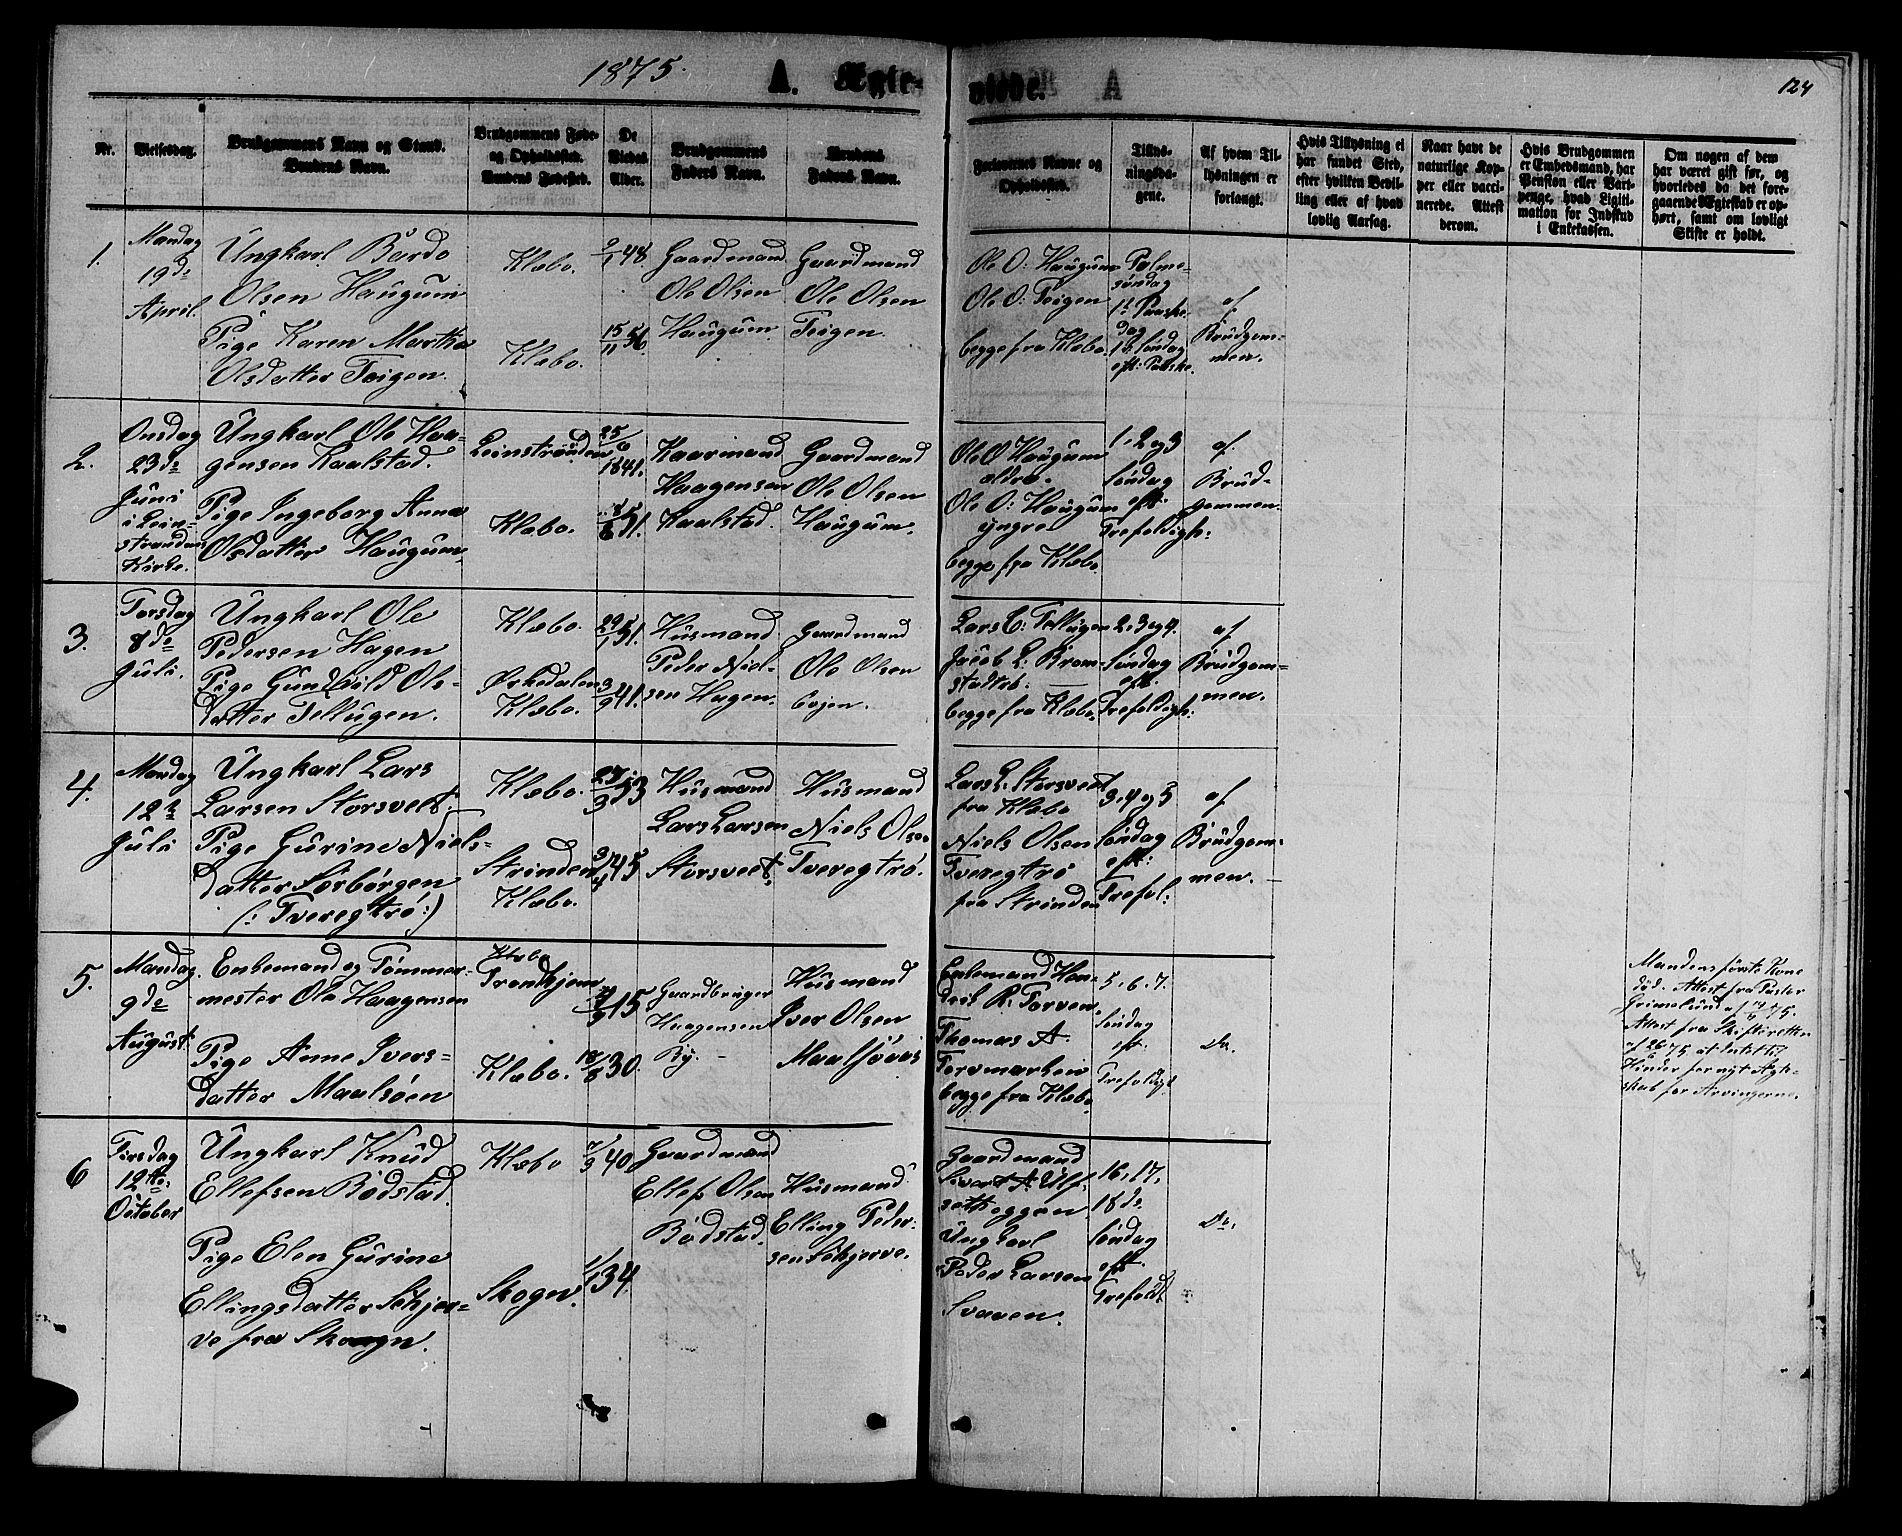 1875.
A. Ægte-
vielse. A
124
Nr.
Vielsesdag.
Brudgommens Navn og Stand.
Brudens Navn.
Brudgommens Føde-
og Opholdssted.
Brudens Fødested.
De
Viedes
Alder.
Brudgommens
Faders Navn.
Brudens
Faders Navn.
Forlovernes Navne og
Opholdssted.
Tillys-
ningsda-
gene.
Af hvem Til-
lysningen er
forlangt.
Hvis Tillysning ei
har fundet Sted,
efter hvilken Bevil-
ling eller af hvad
lovlig Aarsag.
Naar havt de
naturlige Kop-
per eller vacci-
nerede. Attest
derom.
Hvis Brudgommen
er Embedsmand, har
Pension eller Vart-
penge, hvad Ligiti-
mation for Indskud
i Enkekassen.
Om nogen af dem
har været gift før, og
hvorledes da det fore-
gaaende Ægteskab er op-
hørt, samt om lovligt
Skifte er holdt.
1.
Mandag
19de
April.
Ungkarl Bardo
Olsen Haugum
Pige Karen Martha
Olsdatter Teigen.
Klæbo.
Klæbo.
2/1 48.
15/11 56.
Gaardmand
Ole Olsen
Haugum.
Gaardmand
Ole Olsen
Teigen.
Ole O: Haugum
Ole O: Teigen
begge fra Klæbo.
Palme-
søndag
1ste Paaske-
dag
1ste Søndag
eft: Paaske.
af
Brudgom-
men.
2.
Onsdag
23de
Juni
i Lein-
stranden
Kirke.
Ungkarl Ole Haa-
gensen Kaalstad.
Pige Ingeborg Anna
Olsdatter Haugum.
Leinstranden
Klæbo.
25/6
1841.
51.
Kaarmand
Haagensen
Kaalstad.
Gaardmand
Ole Olsen
Haugum.
Ole O Haugum
ældre.
Ole O: Haugum
yngre
begge fra Klæbo.
1, 2 og 3
Søndag
eft.
Trefoldigh:
af
Brud-
gommen.
3.
Torsdag
8de
Juli.
Ungkarl Ole
Pedersen Hagen
Pige Gunhild Ols-
datter Tellugen.
Klæbo.
Ørkedalen
Klæbo.
29/1 51.
3/9 41.
Husmand
Peder Niel-
sen Hagen.
Gaardmand
Ole Olsen
Evjen.
Lars C: Tellugen
Jacob L: Brom-
stadtrø.
begge fra Klæbo.
2, 3 og 4.
Søndag
eft.
Trefoldigh:
af
Brudgom-
men.
4.
Mandag
12te
Juli
Ungkarl Lars
Larsen Storsveet.
Pige Gurine Niels-
datter Sørborgen
(: Tveregtrø:)
Klæbo.
Strinden
Klæbo.
27/3 53
3/4 45
Husmand
Lars Larsen
Storsveet.
Husmand
Niels Olsen
Tveregtrø.
Lars L. Storsveet
fra Klæbo
Niels Olsen
Tveregtrø
fra Strinden
3, 4 og 5
Søndag
eft:
Trefol:
af
Brudgom-
men.
5.
Mandag.
9de
August.
Enkemand og Tømmer-
mester Ole Haagensen
Pige Anne Ivers-
datter Maalsøen
Trondhjem
Klæbo.
15
18/8 30.
Gaardbruger
Haagensen
By.
Husmand
Iver Olsen
Maalsøaas
Enkemand Hen-
drik R: Torven,
Thomas A.
Torvmarken
begge fra Klæbo
5. 6. 7.
Søndag
eft.
Trefoldigt
Do.
Mandens første Kone
død. Attest fra Pastor
Grimelund
Attest fra Skifteretten
at Intet til
Hinder for nyt Ægte-
skab for Arvingerne.
6
Tirsdag
12te
October
Ungkarl Knud
Ellefsen Bødstad.
Pige Elen Gurine
Ellingsdatter Schjer-
ve fra Skogn.
Klæbo
Skogn.
7/3 40.
1/1 34.
Gaardmand
Ellef Olsen
Bødstad.
Husmand
Elling Peder-
sen Schjerve.
Gaardmand
Sivert A. Ulf-
setheggen
Ungkarl
Peder Larsen
Svaven.
16, 17,
18de
Søndag
eft.
Trefoldt
Do.